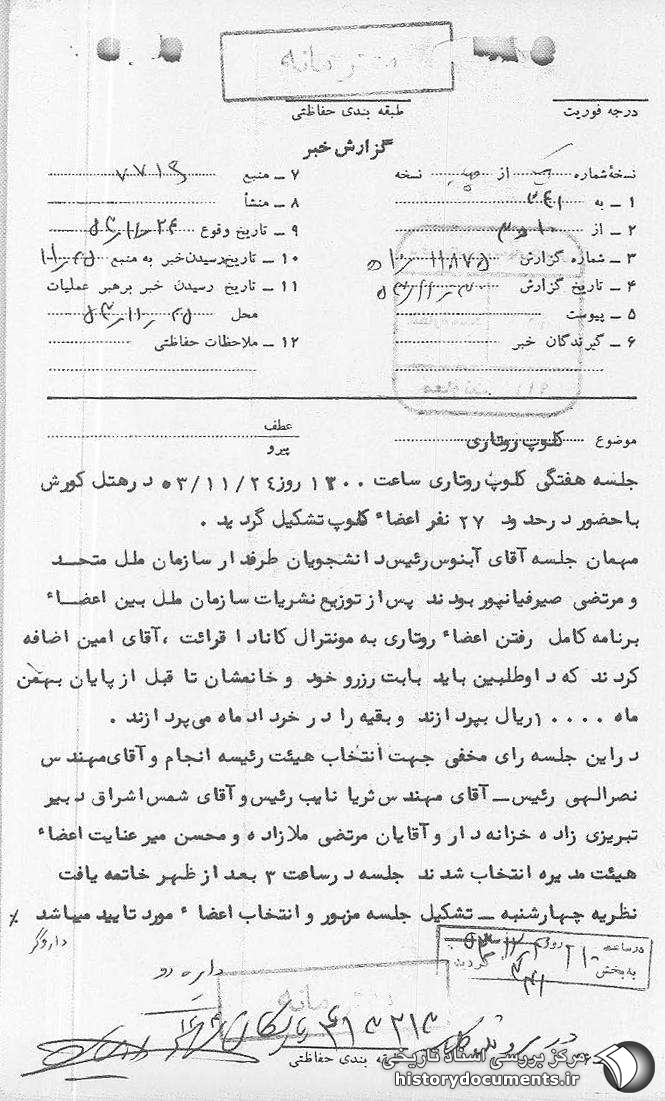 درجه فوریت
طبقه بندی حفاظتی
گزارش خبر
نسخهٔ شماره از نسخه
۱ ـ به ۳۴۱
۲ ـ از
۳ ـ شماره گزارش
۴ ـ تاریخ گزارش
۵ ـ پیوست
۶ ـ گیرندگان خبر
۷ ـ منبع ۷۷۱۶
۸ ـ منشأ
۹ ـ تاریخ وقوع
۱۰ ـ تاریخ رسیدن خبر به منبع
۱۱ ـ تاریخ رسیدن خبر برهبر عملیات
محل
۱۲ ـ ملاحظات حفاظتی
موضوع کلوپ روتاری
عطف
پیرو
جلسه هفتگی کلوپ روتاری ساعت ۱۳۰۰ روز ۵۳/۱۱/۲۴ در هتل کورش
با حضور در حدود ۲۷ نفر اعضاء کلوپ تشکیل گردید .
مهمان جلسه آقای آبنوس رئیس دانشجویان طرفدار سازمان ملل متحد
و مرتضی صیرفیانپور بودند پس از توزیع نشریات سازمان ملل بین اعضاء
برنامه کامل رفتن اعضاء روتاری به مونترال کانادا قرائت ، آقای امین اضافه
کردند که داوطلبین باید بابت رزرو خود و خانمشان تا قبل از پایان بهمن
ماه ۱۰۰۰۰ ریال بپردازند و بقیه را در خرداد ماه می‌پردازند .
در این جلسه رای مخفی جهت انتخاب هیئت رئیسه انجام و آقای مهندس
نصرالهی رئیس ـ آقای مهندس ثریا نایب رئیس و آقای شمس اشراق دبیر
تبریزی زاده خزانه دار و آقایان مرتضی ملازاده و محسن میر عنایت اعضاء
هیئت مدیره انتخاب شدند جلسه در ساعت ۳ بعد از ظهر خاتمه یافت
نظریه چهارشنبه ـ تشکیل جلسه مزبور و انتخاب اعضاء مورد تایید میباشد ٪
دادوگر
در ساعت روز
به بخش گردید
دایره دو
طبقه بندی حفاظتی
مرکز بررسی اسناد تاریخی
historydocuments.ir